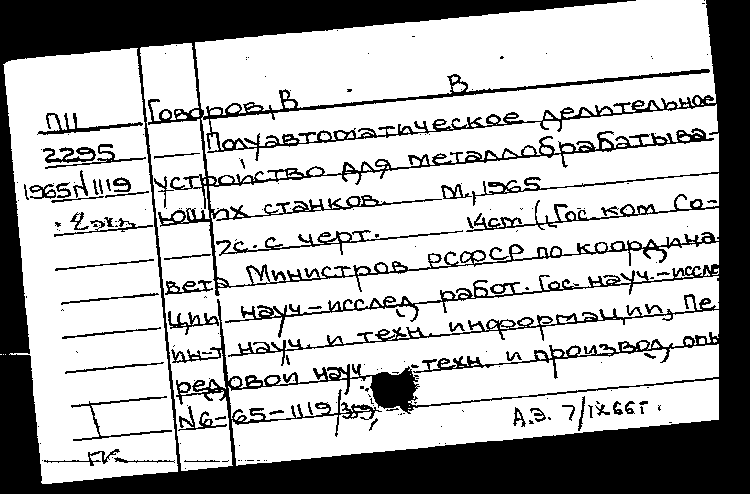 ПП Говоров, В В
2295 Полуавтоматическое делительное
1965 N 1119 устройство для металлобрабатыва-
2 экз. ющих станков. М., 1965
2с. с черт. 14cm (Гос. ком Со-
вета Министров РСФСР по координа
ции науч.-исслед работ. Гос. науч.-иссле
ин-т науч. и техн. информации, Пе
редовой науч. -техн. и производ, опы
N6-65-1119/359,
А.Э. 7/IX 66 г.
ГК